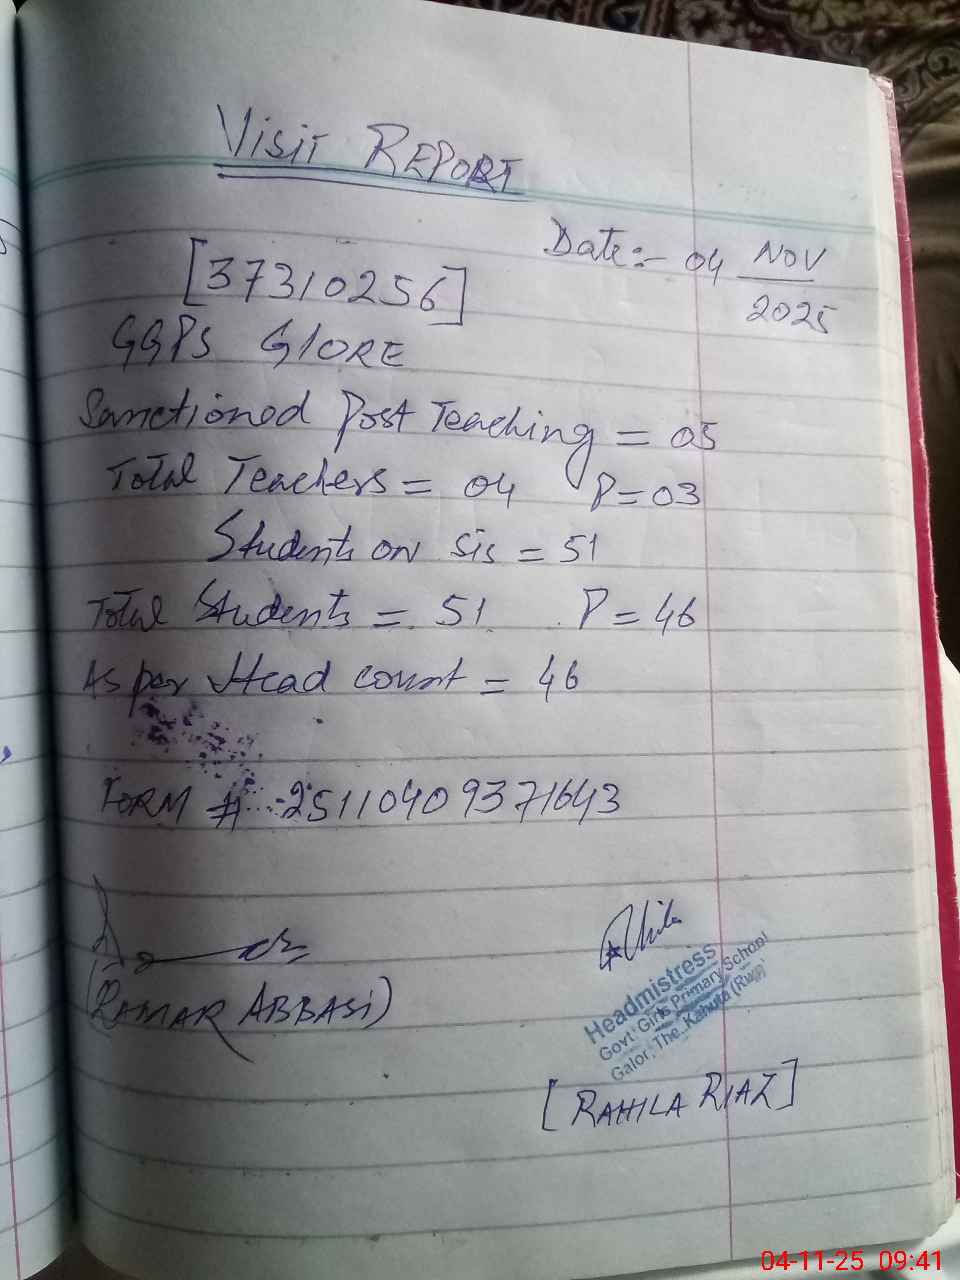 Visit REPORT
Date:- 04 NOV 2025
[37310256]
GGPS GlORE
Sanctioned Post Teaching = 05
Total Teachers = 04 P=03
Students on sis = 51
Total Students = 51 P = 46
As per Head count = 46
FORM # 25110409371643
(QAMAR ABBASi)
Headmistress
Govt. Girls Primary School
Galor, The. Kahuta (Rwp)
[RAHILA RIAZ]
04-11-25 09:41